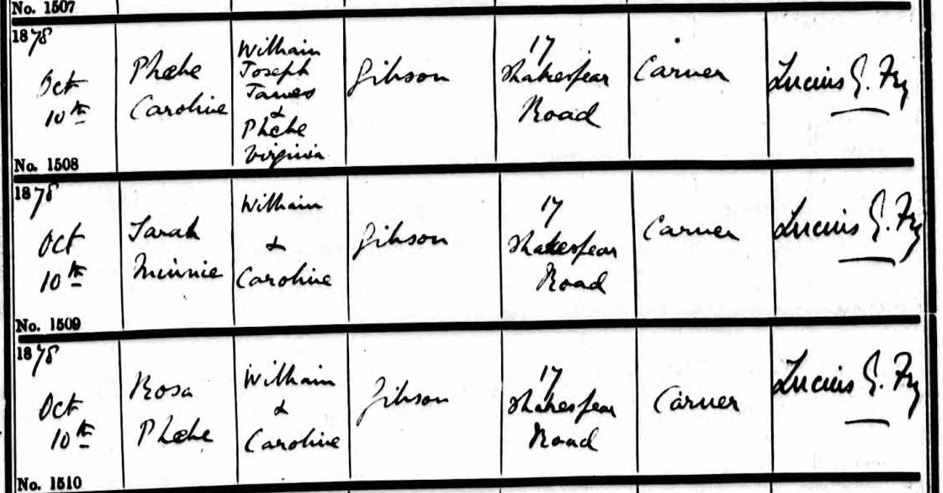 No. 1507
1878
Oct
10th
Phœbe
Caroline
William
Joseph
James
&
Phœbe
Virginia
Gibson
17
Shakespear
Road
Carver
Lucius G. Fry
No. 1508
1878
Oct
10th
Sarah
Minnie
William
&
Caroline
Gibson
17
Shakespear
Road
Carver
Lucius G. Fry
No. 1509
1878
Oct
10th
Rosa
Phœbe
William
&
Caroline
Gibson
17
Shakespear
Road
Carver
Lucius G. Fry
No. 1510